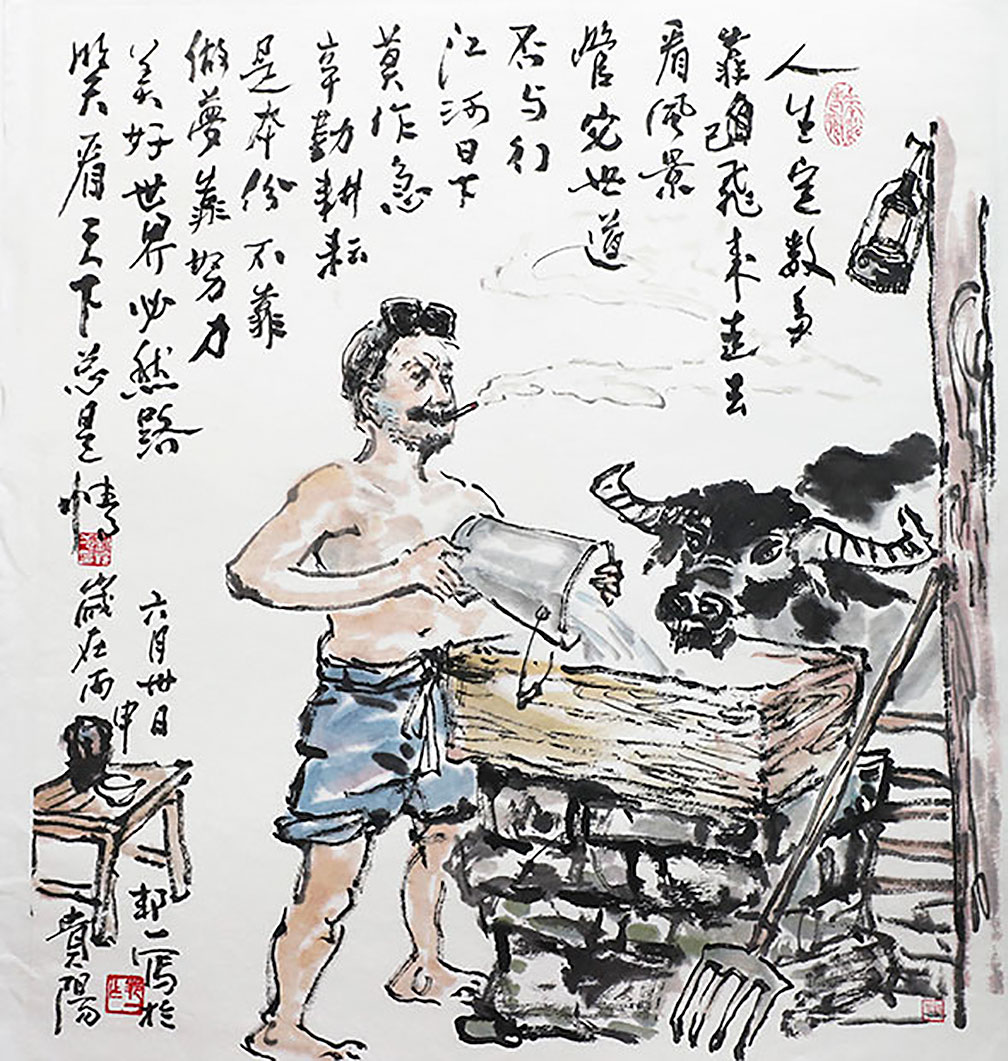 人生定数多
靠自己飛来走去
看風景
管它世道
否与行
江河日下
莫作急
辛勤耕耘
是本份不靠
做夢靠努力
美好世界必然路
笑看天下总是情
歲在丙申
六月卅日
邦一寫於
貴陽